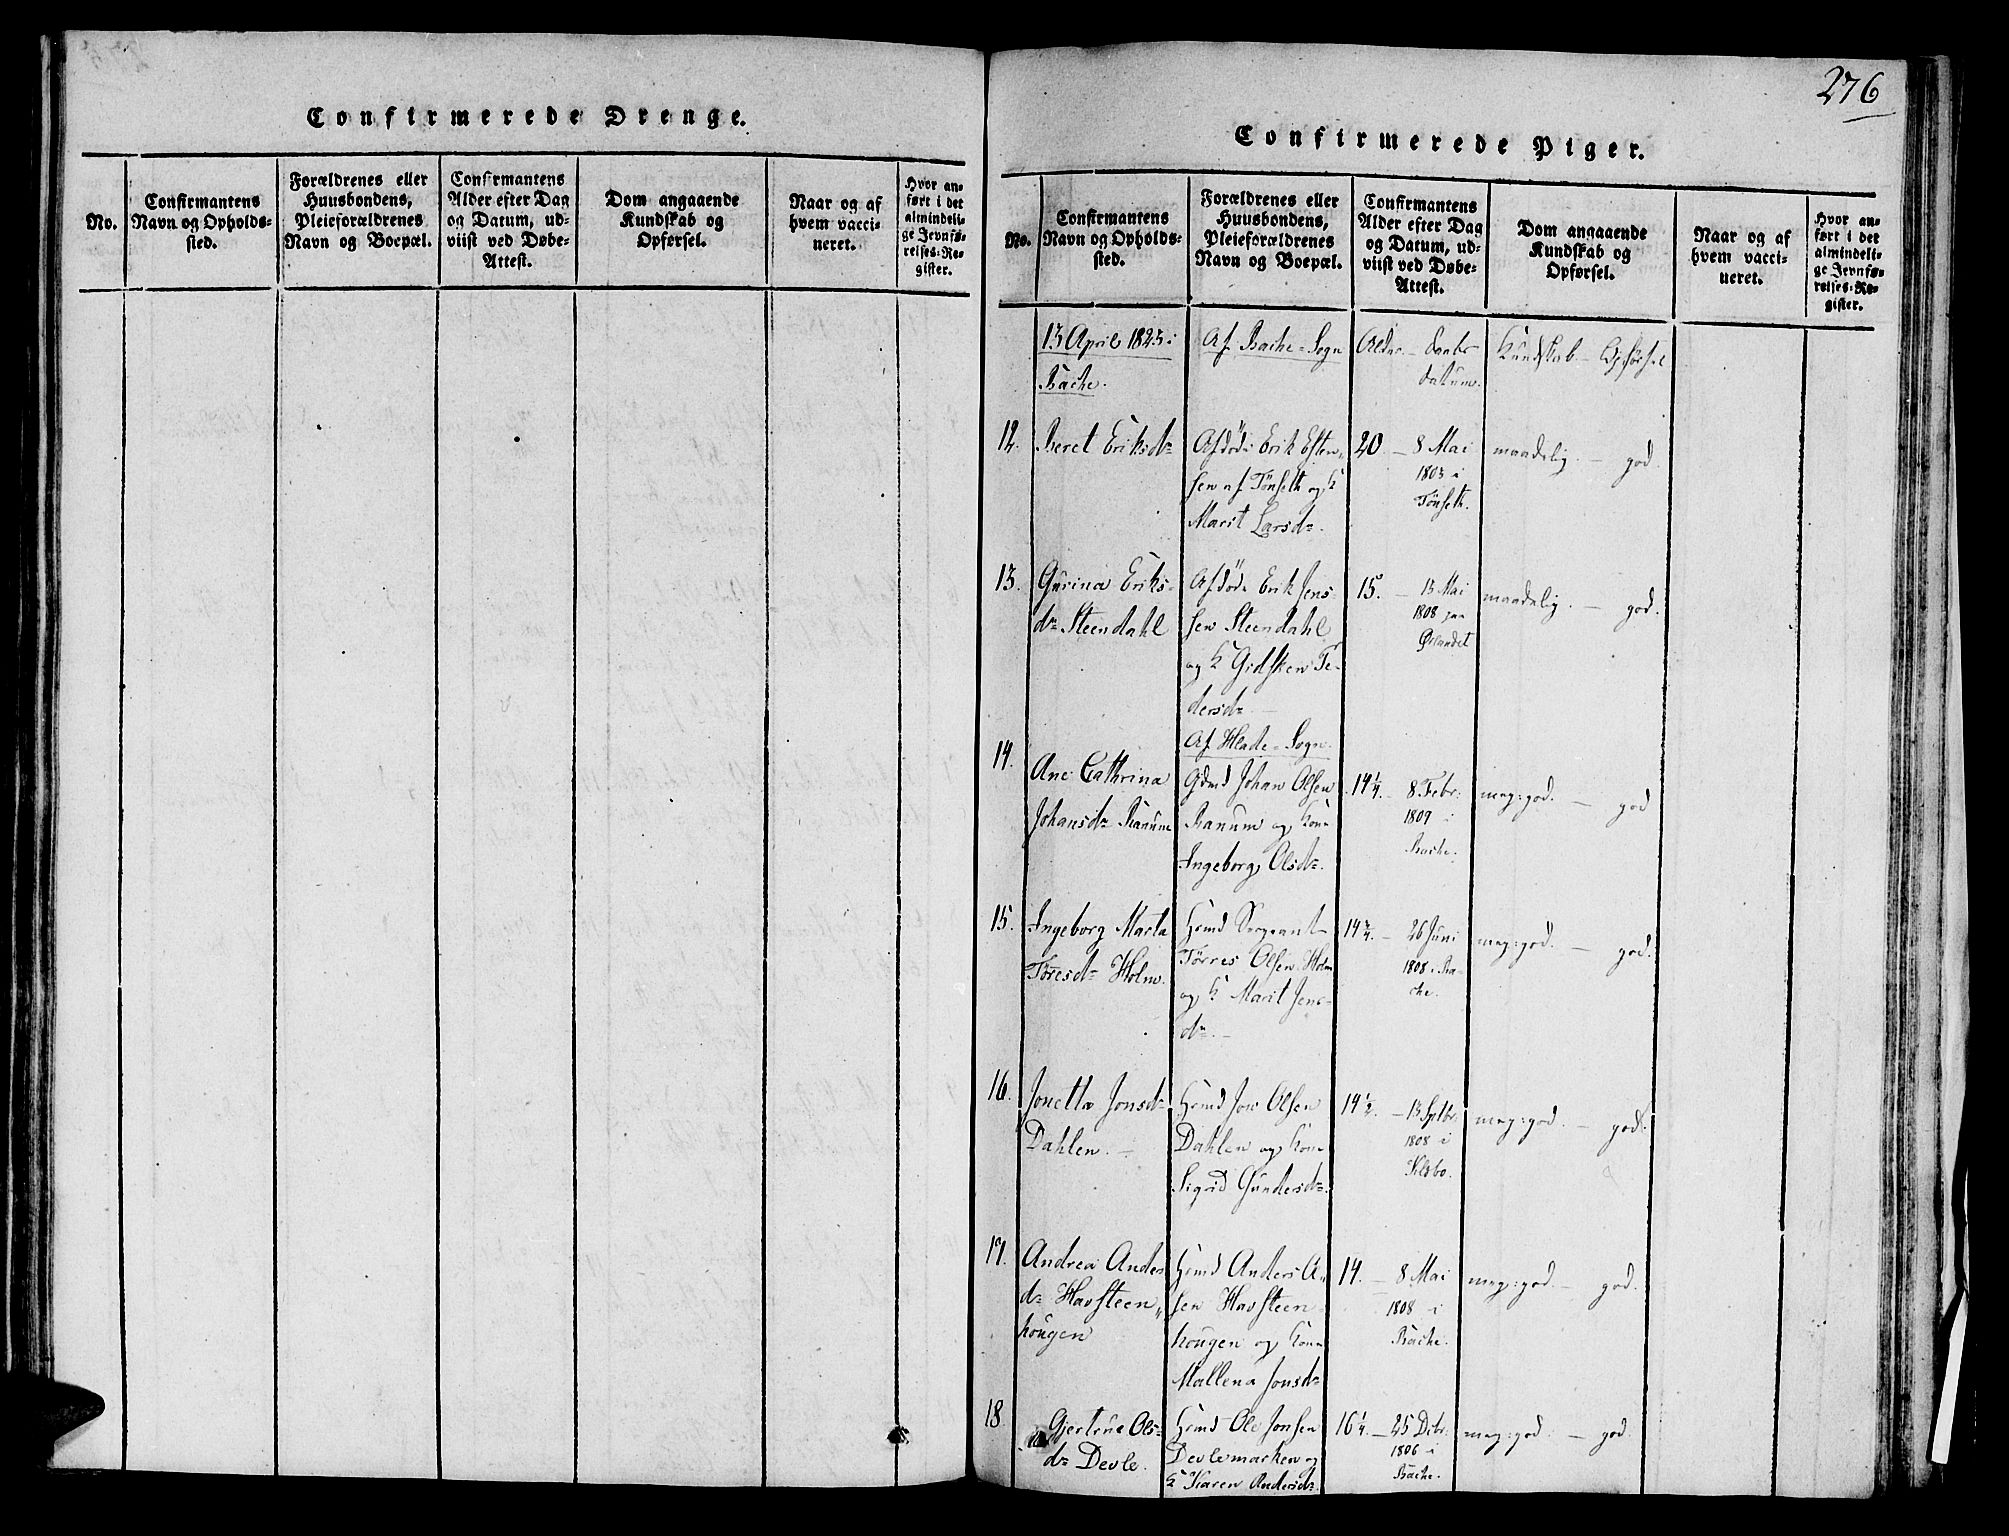 276
Confirmerede Drenge.
No.
Confirmantens
Navn og Opholds-
sted.
Forældrenes eller
Huusbondens,
Pleieforældrenes
Navn og Boepæl.
Confirmantens
Alder efter Dag
og Datum, ud-
viist ved Døbe-
Attest.
Dom angaaende
Kundskab og
Opførsel.
Naar og af
hvem vacci-
neret.
Hvor an-
ført i det
almindeli-
ge Jevnfø-
relses-Re-
gister.
Confirmerede Piger.
No.
Confirmantens
Navn og Opholds-
sted.
Forældrenes eller
Huusbondens,
Pleieforældrenes
Navn og Boepæl.
Confirmantens
Alder efter Dag
og Datum, ud-
viist ved Døbe-
Attest.
Dom angaaende
Kundskab og
Opførsel.
Naar og af
hvem vacci-
neret.
Hvor an-
ført i det
almindeli-
ge Jevnfø-
relses-Re-
gister.
13 April 1823 i
Bache.
Af Bache-Sogn
Alder -
datum.
Kundskab - Opførsel
12. Beret Eriksdr
Afdøde Erik Esten-
sen af Tönseth og k
Marit Larsdr.
20. - 8 Mai
1803 i
Tönseth.
maadelig. - god.
13. Gurina Eriks-
dr Steendahl
Afdøde Erik Jens-
sen Steendahl
og k Gidsken Pe-
dersdr -
15. - 13 Mai
1808 paa
Ørlandet
maadelig. - god.
Af Hlade-Sogn.
14. Ane Cathrina
Johansdr Ranum
Gdmd Johan Olsen
Ranum og Kone
Ingeborg Olsdr.
14 1/4. - 8 Febr:
1809 i
Bache.
meg: god. - god
15. Ingeborg Marta
Törresdr Holm.
Hsmd Sergeant
Törres Olsen Holm
og k Marit Jens-
dr. -
14 3/4. - 26 Juni
1808 i Ba-
che.
meg: god. - god.
16. Jonetta Jonsdr
Dahlen. -
Hsmd Jon Olsen
Dahlen og Kone
Sigrid Gundersdr.
14 1/2. - 13 Sptbr:
1808 i
meg: god. - god.
17. Andrea Anders
dr Havsteen-
hougen
Hsmd Anders A-
sen Havsteen
hougen og Kone
Mallena Jonsdr
14. - 8 Mai
1808 i
Bache.
meg: god. - god.
18. Gjertrue Ols-
dr Devle.
Hsmd Ole Jonsen
Devlemarken og
k Karen Andersdr.
16 1/4. - 25 Dcbr:
1806 i
Bache.
meg: god. - god.